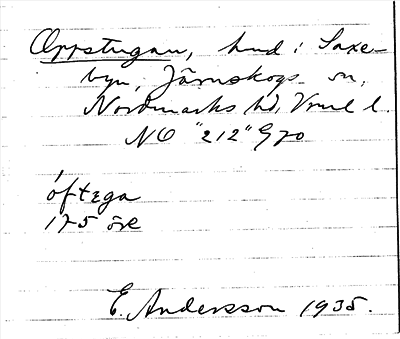 Oppstugan, hmd i Saxe-
byn, Järnskogs sn,
Nordmarks hd, Vrml l.
NO "212" G70
óftega
175 öre
E. Andersson 1935.